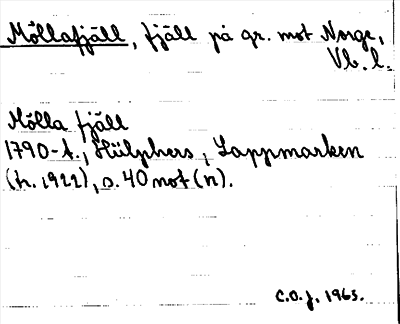 Möllafjäll, fjäll på gr. mot Norge,
Vb. l.
Mölla fjäll
1790-t., Hülphers, Lappmarken
(tr. 1922), s. 40 not (n).
C.O.J. 1965.